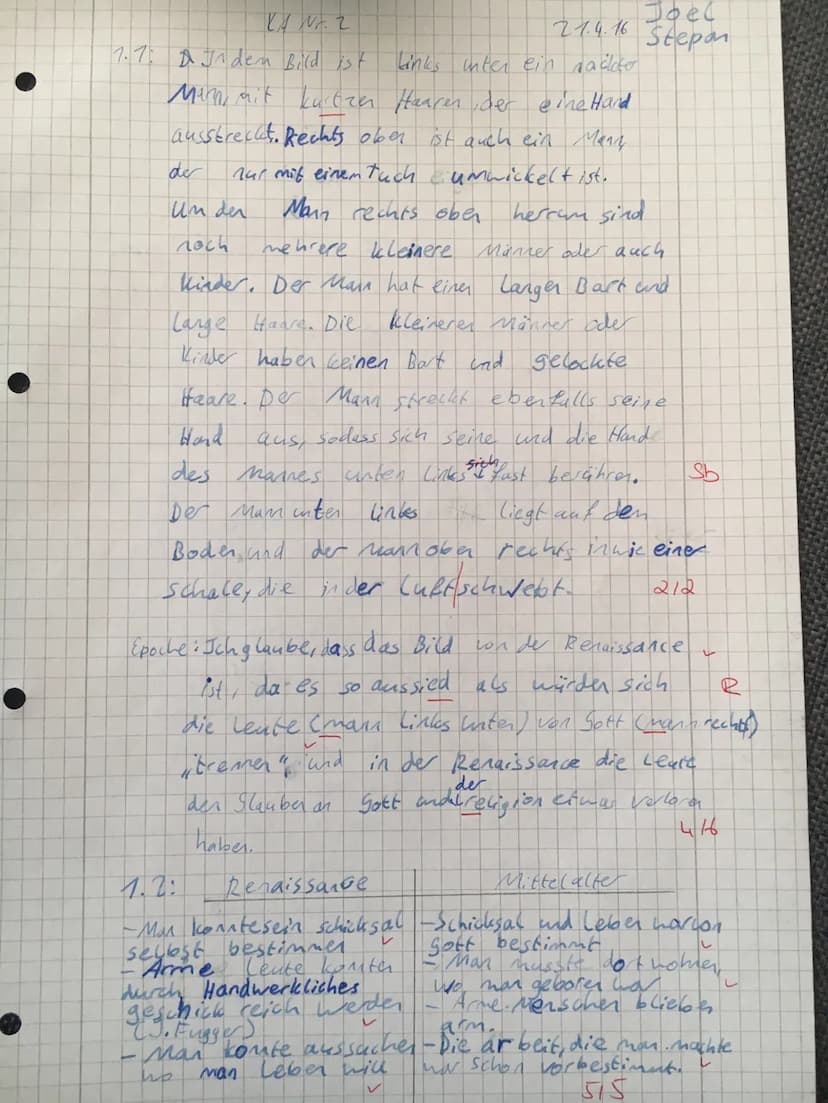 KA Nr. 2 21.4.16 Joel
Stepan
1.1: In dem Bild ist links unten ein nackter
Mann, mit kurtzen Haaren, der eine Hand
ausstreckt. Rechts oben ist auch ein Mann,
der nur mit einem Tuch umwickelt ist.
Um den Mann rechts oben herrum sind
noch mehrere kleinere Männer oder auch
Kinder. Der Mann hat einen langen Bart und
lange Haare. Die kleineren Männer oder
Kinder haben keinen Bart und gelockte
Haare. Der Mann streckt ebenfalls seine
Hand aus, sodass sich seine und die Hand
sich
des Mannes unten links fast berühren. Sb
Der Mann unten links liegt auf dem
Boden und der Mann oben rechts in wie einer
Schale, die in der Luft schwebt. 2/2
Epoche: Ich glaube, dass das Bild von der Renaissance
ist, da es so aussied als würden sich R
die Leute (mann links unten) von Gott (mann rechts)
„trennen“, und in der Renaissance die Leute
der
den Glauben an Gott und religion etwas verloren
haben. 4/6
1.2: Renaissance Mittelalter
- Man konnte sein schicksal - Schicksal und Leben war von
selbst bestimmen Gott bestimmt
- Arme Leute konnten - Man musste dort wohnen,
durch Handwerkliches wo man geboren war
geschick reich werden - Arme Menschen blieben
(J. Fugger) arm.
- Man konnte aussuchen - Die arbeit, die man machte
wo man Leben will war schon vorbestimmt.
5/5